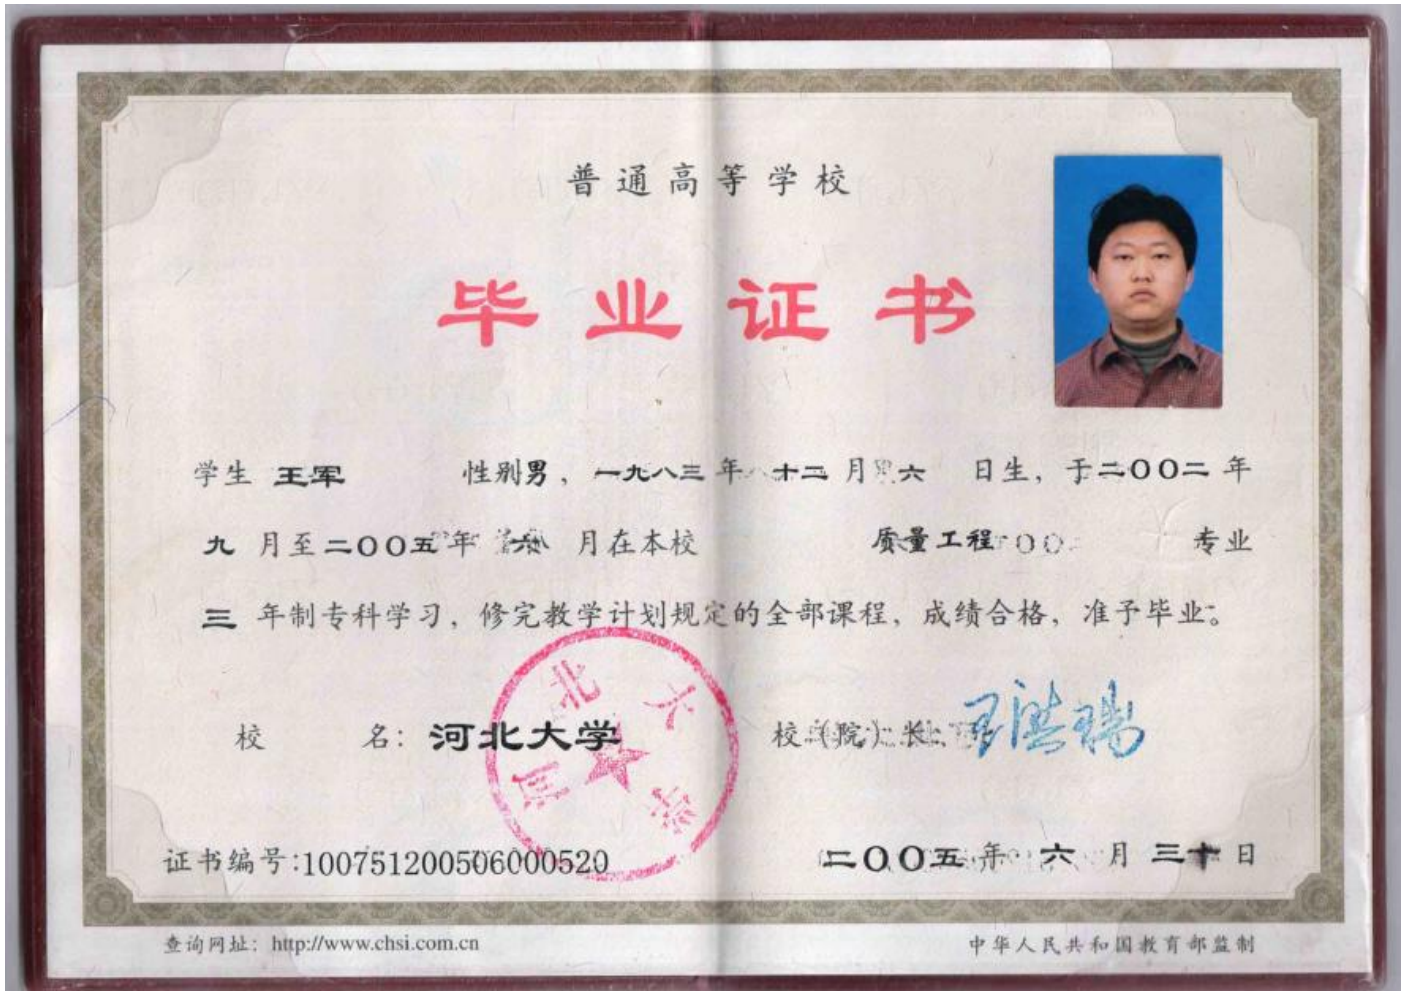 普通高等学校
毕业证书
学生 王军 性别男，一九八三年十二月六日生，于二〇〇二年
九月至二〇〇五年六月在本校 质量工程 专业
三年制专科学习，修完教学计划规定的全部课程，成绩合格，准予毕业。
校 名：河北大学 校（院）长：
河北大学
证书编号：100751200506000520 二〇〇五年六月三十日
查询网址：http://www.chsi.com.cn 中华人民共和国教育部监制